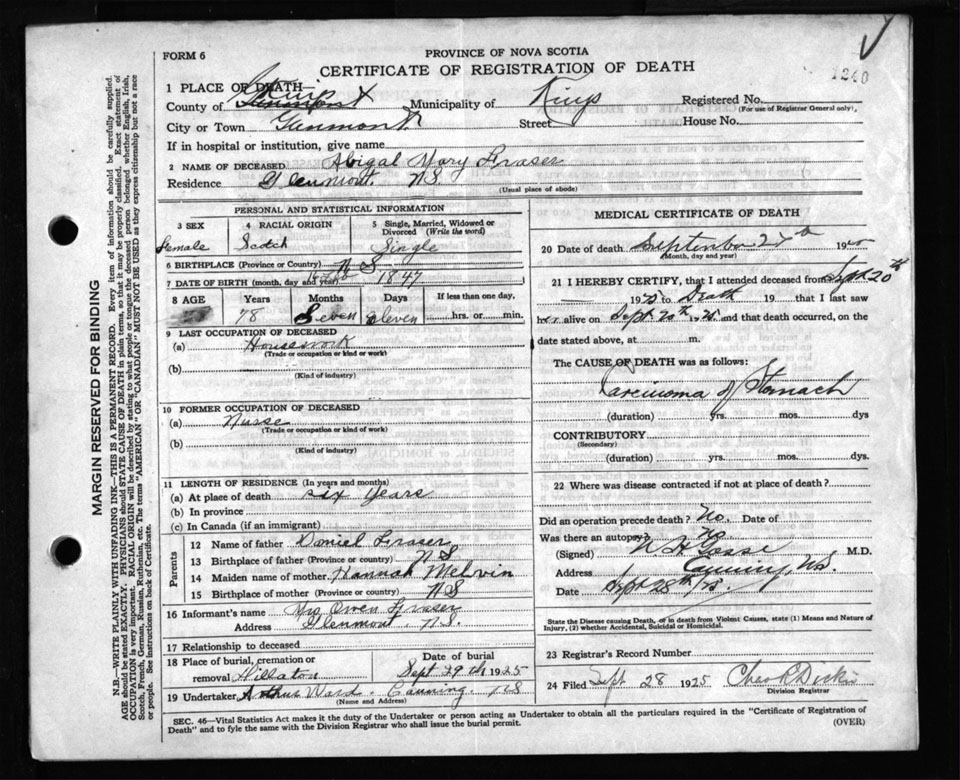 FORM 6
PROVINCE OF NOVA SCOTIA
CERTIFICATE OF REGISTRATION OF DEATH
1240
1 PLACE OF DEATH—
County of Kings Municipality of Kings Registered No.
(For use of Registrar General only)
City or Town Glenmont Street House No.
If in hospital or institution, give name
2 NAME OF DECEASED Abigal Mary Fraser
Residence Glenmont. N.S.
(Usual place of abode)
PERSONAL AND STATISTICAL INFORMATION
3 SEX
Female
4 RACIAL ORIGIN
Scotch
5 Single, Married, Widowed or Divorced (Write the word)
Single
6 BIRTHPLACE (Province or Country) N S
7 DATE OF BIRTH (month, day and year) 1847
8 AGE Years Months Days If less than one day,
78 Seven Eleven hrs. or min.
9 LAST OCCUPATION OF DECEASED
(a) Housework
(Trade or occupation or kind or work)
(b)
(Kind of industry)
10 FORMER OCCUPATION OF DECEASED
(a) Nurse
(Trade or occupation or kind of work)
(b)
(Kind of industry)
11 LENGTH OF RESIDENCE (In years and months)
(a) At place of death six years
(b) In province
(c) In Canada (if an immigrant)
Parents
12 Name of father Daniel Fraser
13 Birthplace of father (Province or country) N S
14 Maiden name of mother Hannah Melvin
15 Birthplace of mother (Province or country) N S
16 Informant's name Mrs Owen Fraser
Address Glenmont, N.S.
17 Relationship to deceased
18 Place of burial, cremation or removal Hillaton
Date of burial
Sept 29th 1925
19 Undertaker Arthur Ward. Canning. N S
(Name and Address)
MEDICAL CERTIFICATE OF DEATH
20 Date of death September 27th 19
(Month, day and year)
21 I HEREBY CERTIFY, that I attended deceased from Sept 20th
1925 to Death 19 that I last saw
her alive on Sept 20th 1925 and that death occurred, on
date stated above, at m.
The CAUSE OF DEATH was as follows:
Carcinoma of Stomach
(duration) yrs. mos. dys
CONTRIBUTORY
(Secondary)
(duration) yrs. mos. dys.
22 Where was disease contracted if not at place of death?
Did an operation precede death? No. Date of
Was there an autopsy? No
(Signed) M.D.
Address Canning, N.S.
Date Sept 28th /25
State the Disease causing Death, or in death from Violent Causes, state (1) Means and Nature of Injury, (2) whether Accidental, Suicidal or Homicidal.
23 Registrar's Record Number
24 Filed Sept 28 1925
Division Registrar
SEC. 46—Vital Statistics Act makes it the duty of the Undertaker or person acting as Undertaker to obtain all the particulars required in the "Certificate of Registration of
Death" and to fyle the same with the Division Registrar who shall issue the burial permit. (OVER)
MARGIN RESERVED FOR BINDING
N.B.—WRITE PLAINLY WITH UNFADING INK—THIS IS A PERMANENT RECORD. Every item of information should be carefully supplied.
AGE should be stated EXACTLY. PHYSICIANS should STATE CAUSE OF DEATH in plain terms, so that it may be properly classified. Exact statement of
OCCUPATION is very important. RACIAL ORIGIN will be described by stating to what people or tongue the deceased person belonged, whether English, Irish,
Scotch, French, German, Russian, Ruthenian, etc. The terms "AMERICAN" or "CANADIAN" MUST NOT BE USED as they express citizenship but not a race
or people. See instructions on back of Certificate.